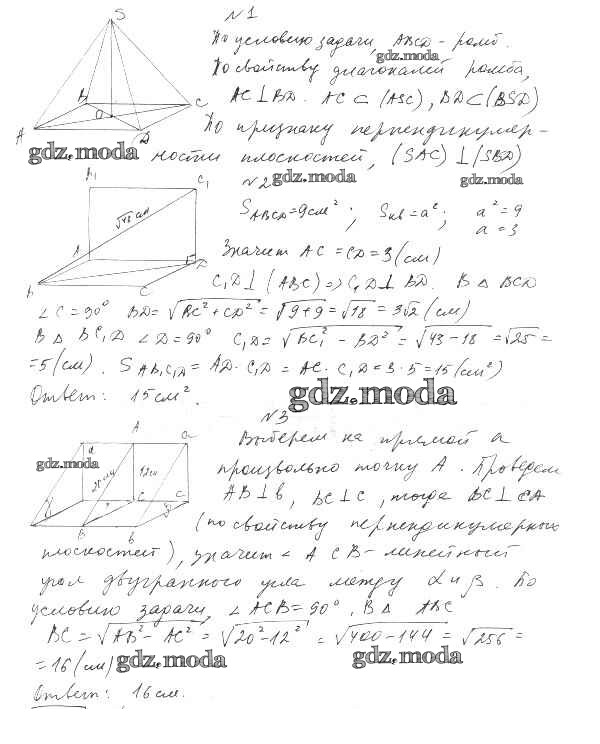 №1
По условию задачи, ABCD - ромб.
gdz.moda
По свойству диагоналей ромба,
AC ⊥ BD. AC ⊂ (ASC), BD ⊂ (BSD)
По признаку перпендикуляр-
gdz.moda ности плоскостей, (SAC) ⊥ (SBD)
S
B
C
O
A
D
№2 gdz.moda gdz.moda
S ABCD = 9см²; Sкв = a²; a² = 9
a = 3
Значит AC = CD = 3 (см)
C₁D ⊥ (ABC) => C₁D ⊥ BD. В △ BCD
A₁
C₁
√43 см
A
D
B
C
∠C = 90° BD = √BC² + CD² = √9+9 = √18 = 3√2 (см)
В △ BC₁D ∠D = 90° C₁D = √BC₁² - BD² = √43 - 18 = √25 =
= 5 (см). S AB₁C₁D = AD · C₁D = AC · C₁D = 3 · 5 = 15 (см²)
Ответ: 15 см².
gdz.moda
№3
Выберем на прямой a
gdz.moda произвольно точку A. Проведем
AB ⊥ b, BC ⊥ c, тогда BC ⊥ CA
(по свойству перпендикулярных
A
a
d
20 см
12 см
C
c
B
b
плоскостей), значит ∠ACB - линейный
угол двугранного угла между α и β. По
условию задачи, ∠ACB = 90°, В △ ABC
BC = √AB² - AC² = √20² - 12² = √400 - 144 = √256 =
= 16 (см) gdz.moda gdz.moda
Ответ: 16 см.